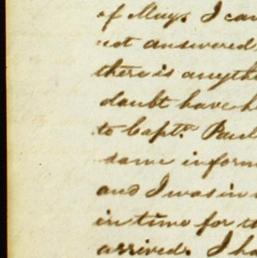 of May. I can
not answered
there is anythi
doubt have h
to Capt.
same inform
and I was in
in time for th
arrived. I ha